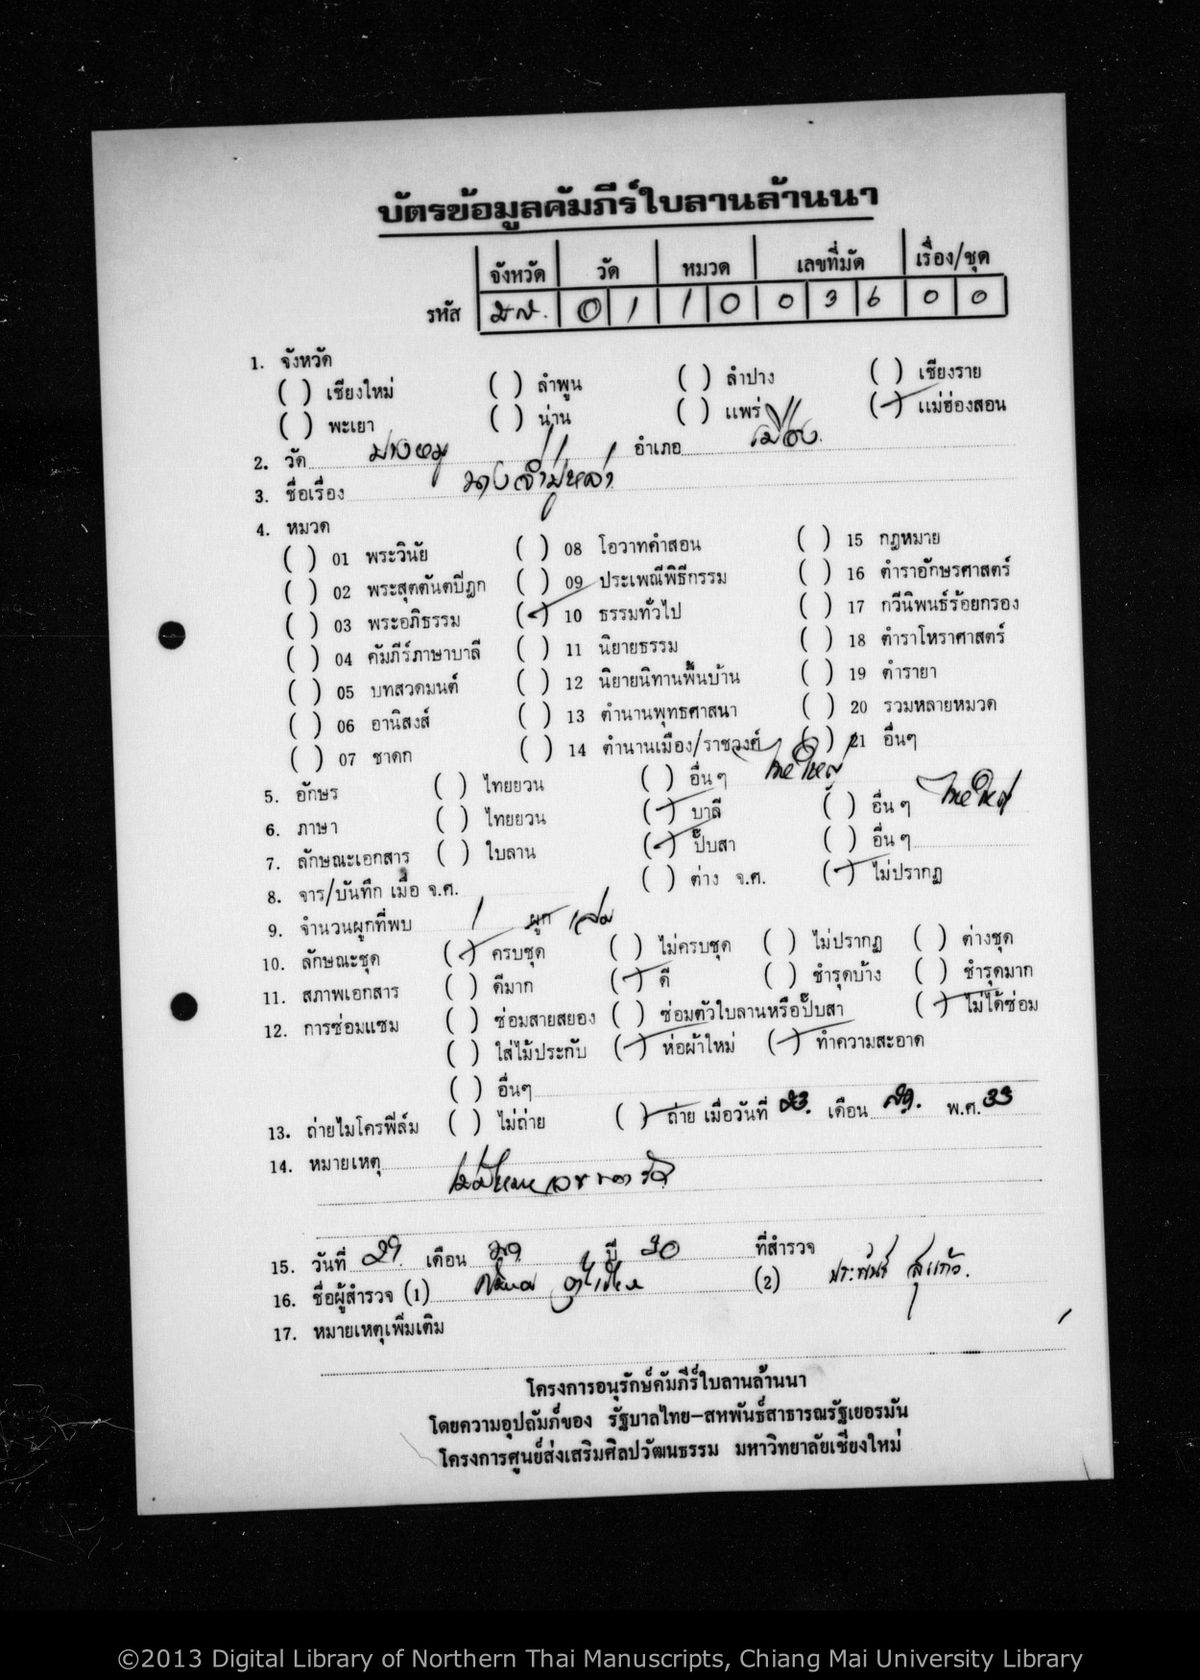 บัตรข้อมูลคัมภีร์ใบลานล้านนา
จังหวัด วัด หมวด เลขที่มัด เรื่อง/ชุด
รหัส มส. 0 1 1 0 0 3 6 0 0
1. จังหวัด
( ) เชียงใหม่ ( ) ลำพูน ( ) ลำปาง ( ) เชียงราย
( ) พะเยา ( ) น่าน ( ) แพร่ (✓) แม่ฮ่องสอน
2. วัด ปางหมู อำเภอ เมือง
3. ชื่อเรื่อง
4. หมวด
( ) 01 พระวินัย ( ) 08 โอวาทคำสอน ( ) 15 กฎหมาย
( ) 02 พระสุตตันตปิฎก ( ) 09 ประเพณีพิธีกรรม ( ) 16 ตำราอักษรศาสตร์
( ) 03 พระอภิธรรม (✓) 10 ธรรมทั่วไป ( ) 17 กวีนิพนธ์ร้อยกรอง
( ) 04 คัมภีร์ภาษาบาลี ( ) 11 นิยายธรรม ( ) 18 ตำราโหราศาสตร์
( ) 05 บทสวดมนต์ ( ) 12 นิยายนิทานพื้นบ้าน ( ) 19 ตำรายา
( ) 06 อานิสงส์ ( ) 13 ตำนานพุทธศาสนา ( ) 20 รวมหลายหมวด
( ) 07 ชาดก ( ) 14 ตำนานเมือง/ราชวงศ์ ( ) 21 อื่นๆ
5. อักษร ( ) ไทยยวน ( ) อื่นๆ ไทยใหญ่
6. ภาษา ( ) ไทยยวน (✓) บาลี ( ) อื่นๆ ไทยใหญ่
7. ลักษณะเอกสาร ( ) ใบลาน (✓) ปั๊บสา ( ) อื่นๆ
8. จาร/บันทึก เมื่อ จ.ศ. ( ) ต่าง จ.ศ. (✓) ไม่ปรากฏ
9. จำนวนผูกที่พบ 1 ผูก เล่ม
10. ลักษณะชุด (✓) ครบชุด ( ) ไม่ครบชุด ( ) ไม่ปรากฏ ( ) ต่างชุด
11. สภาพเอกสาร ( ) ดีมาก (✓) ดี ( ) ชำรุดบ้าง ( ) ชำรุดมาก
12. การซ่อมแซม ( ) ซ่อมสายสยอง ( ) ซ่อมตัวใบลานหรือปั๊บสา (✓) ไม่ได้ซ่อม
( ) ใส่ไม้ประกับ (✓) ห่อผ้าใหม่ (✓) ทำความสะอาด
( ) อื่นๆ
13. ถ่ายไมโครฟิล์ม ( ) ไม่ถ่าย (✓) ถ่าย เมื่อวันที่ 23. เดือน สค. พ.ศ. 33
14. หมายเหตุ
15. วันที่ 29 เดือน ปี 30 ที่สำรวจ
16. ชื่อผู้สำรวจ (1) (2) ประพันธ์ สุแก้ว.
17. หมายเหตุเพิ่มเติม
โครงการอนุรักษ์คัมภีร์ใบลานล้านนา
โดยความอุปถัมภ์ของ รัฐบาลไทย-สหพันธ์สาธารณรัฐเยอรมัน
โครงการศูนย์ส่งเสริมศิลปวัฒนธรรม มหาวิทยาลัยเชียงใหม่
©2013 Digital Library of Northern Thai Manuscripts, Chiang Mai University Library